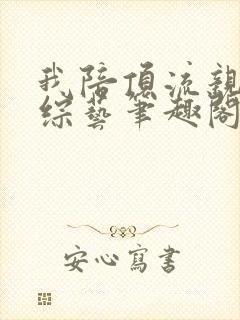 我陪頂流親
綜藝筆趣閣
安心寫書